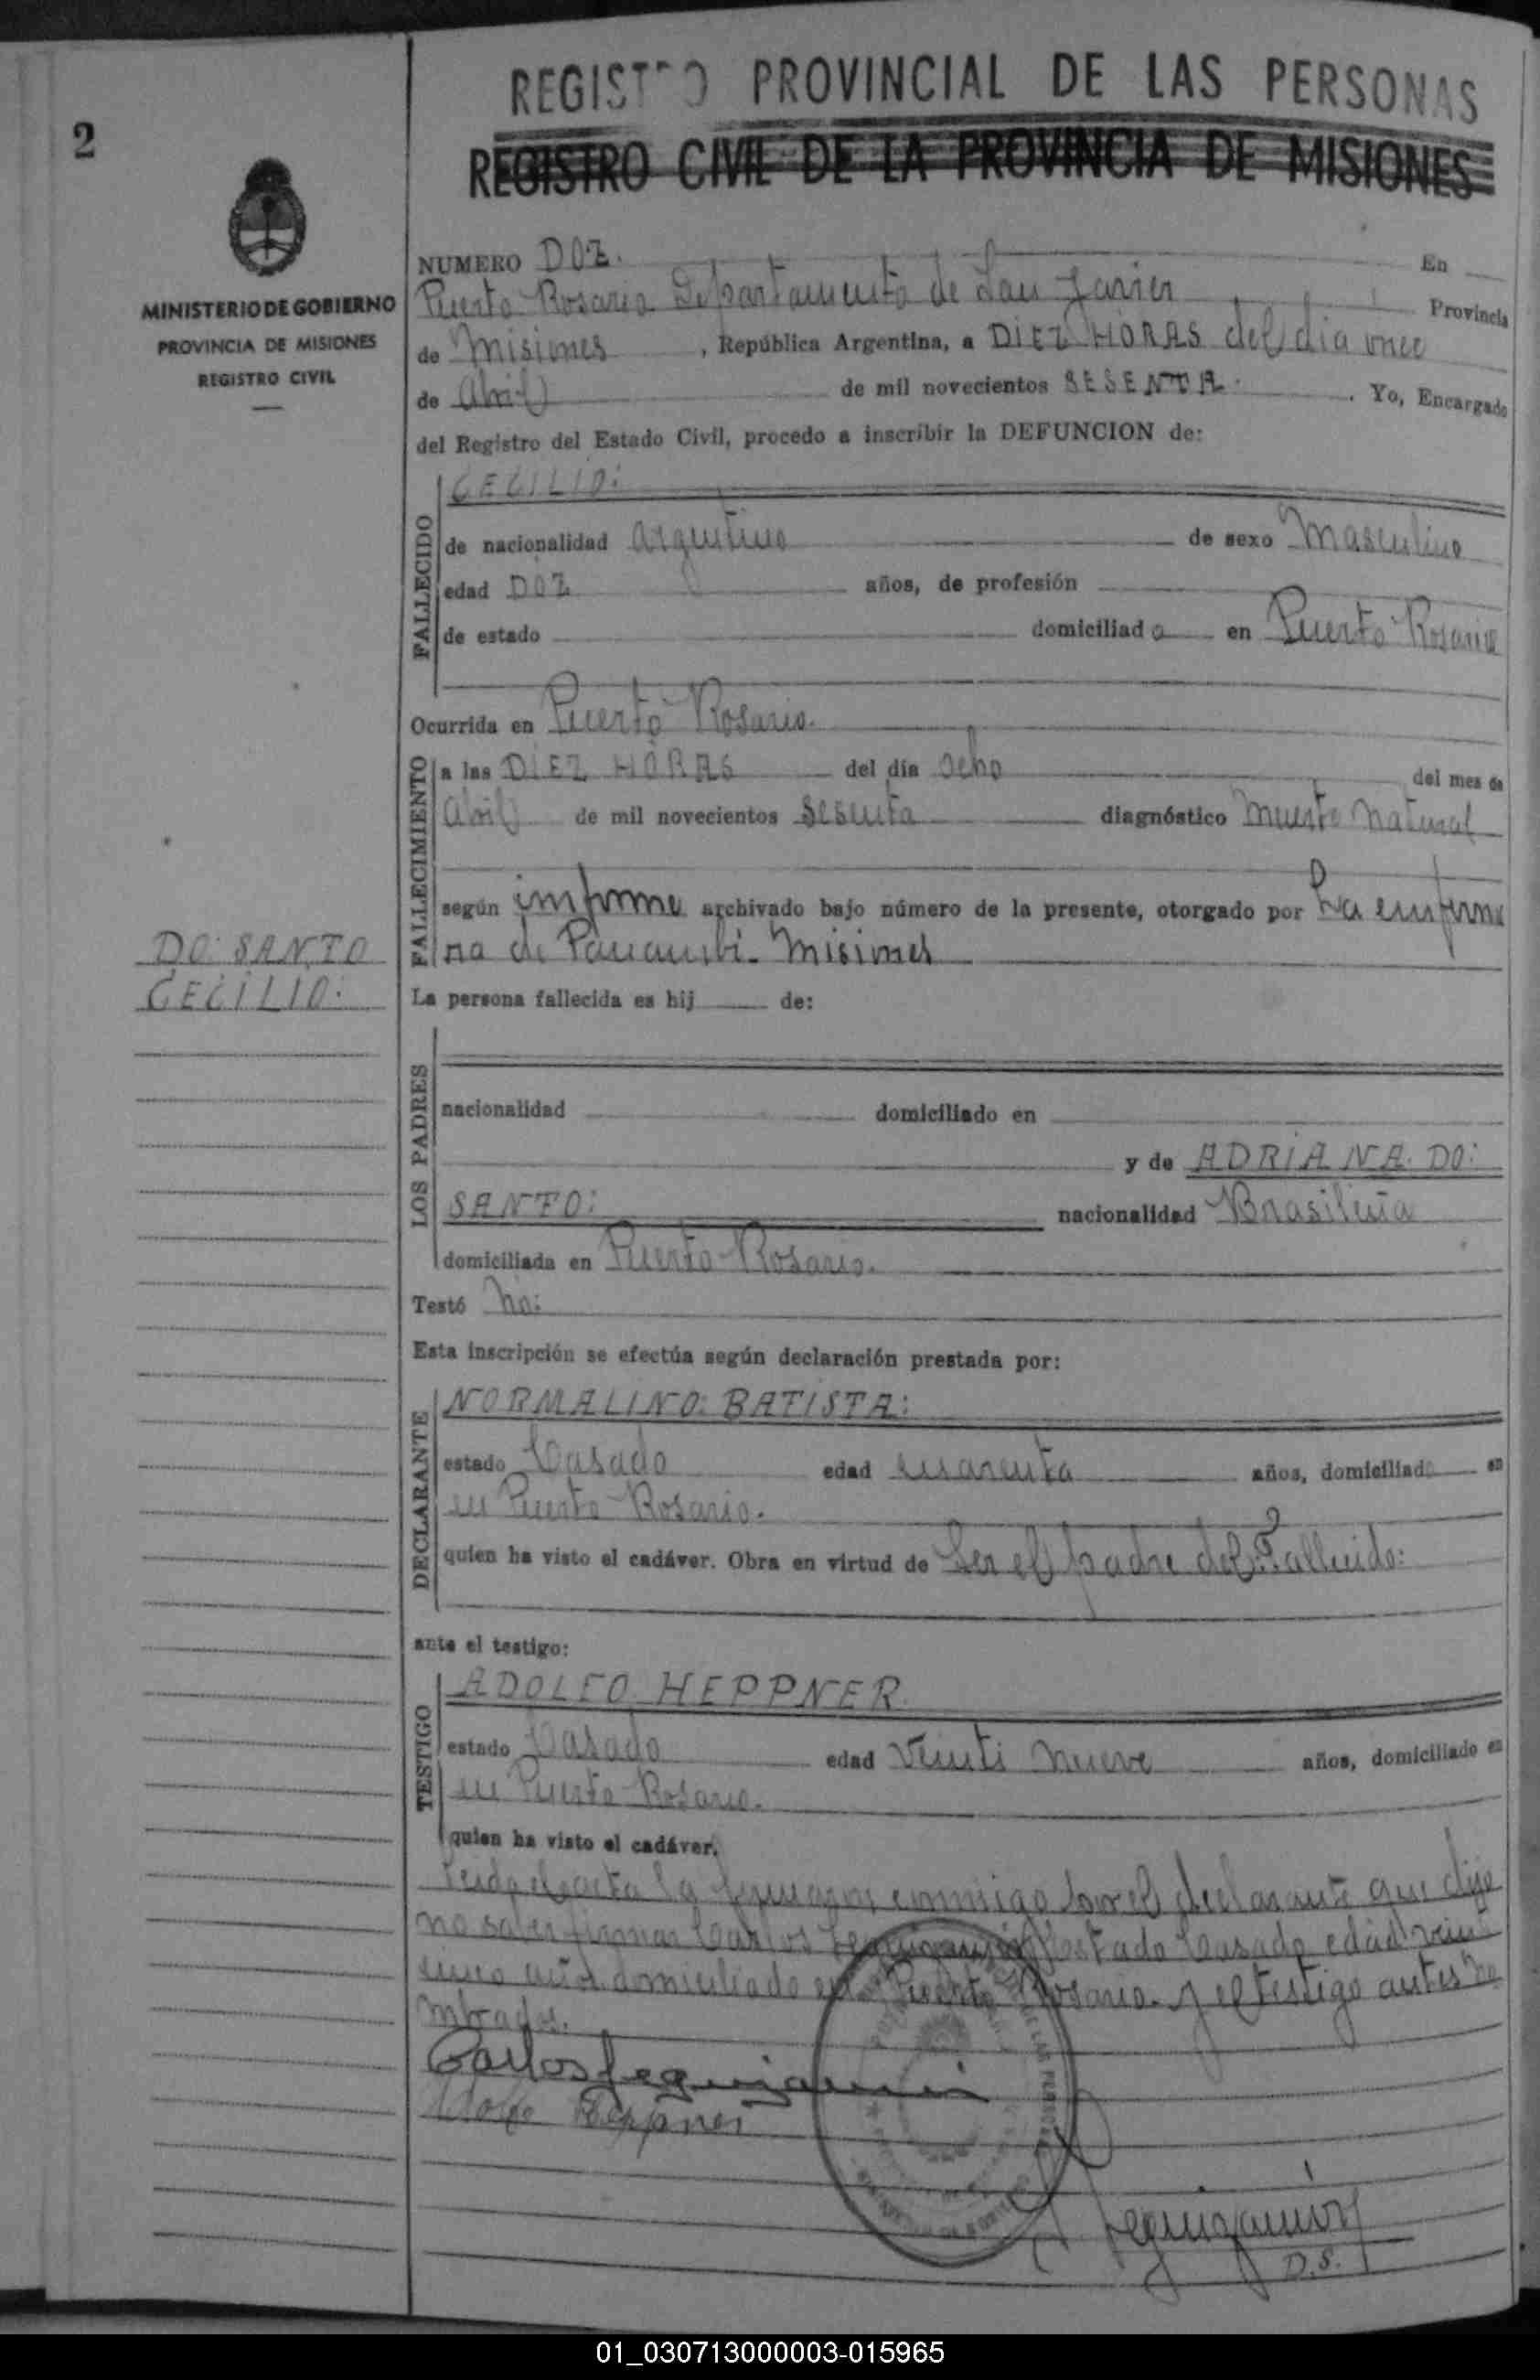 REGISTRO PROVINCIAL DE LAS PERSONAS
REGISTRO CIVIL DE LA PROVINCIA DE MISIONES
2
MINISTERIO DE GOBIERNO
PROVINCIA DE MISIONES
REGISTRO CIVIL
NUMERO DOZ. En
Puerto Rosario Departamento de San Javier Provincia
de Misiones, República Argentina, a DIEZ HORAS del dia once
de Abril de mil novecientos SESENTA. Yo, Encargado
del Registro del Estado Civil, procedo a inscribir la DEFUNCION de:
FALLECIDO
CECILIO:
de nacionalidad Argentino de sexo Masculino
edad DOZ años, de profesión
de estado domiciliado en Puerto Rosario
Ocurrida en Puerto Rosario.
FALLECIMIENTO
a las DIEZ HORAS del día ocho del mes de
Abril de mil novecientos sesenta diagnóstico muerte natural
según informe archivado bajo número de la presente, otorgado por La enferme
ra de Panambi. Misiones
DO SANTO
CECILIO:
La persona fallecida es hij de:
LOS PADRES
nacionalidad domiciliado en
y de ADRIANA. DO:
SANTO: nacionalidad Brasileña
domiciliada en Puerto Rosario.
Testó No:
Esta inscripción se efectúa según declaración prestada por:
DECLARANTE
NORMALINO: BATISTA:
estado Casado edad cuarenta años, domiciliado en
en Puerto Rosario.
quien ha visto el cadáver. Obra en virtud de Ser el padre del Fallecido:
ante el testigo:
TESTIGO
ADOLFO HEPPNER.
estado Casado edad Veinti nueve años, domiciliado en
en Puerto Rosario.
quien ha visto el cadáver.
Leida el acta la firmaron conmigo por el declarante que dijo
no saber firmar Carlos Leguizamón Estado Casado edad vein
cinco años domiciliado en Puerto Rosario. y el testigo antes no
mbrados.
Carlos Leguizamon
Adolfo Heppner
Leguizamón
D.S.
01_030713000003-015965